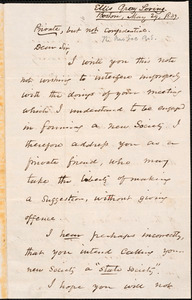 Ellis Gray Loring
Boston, May 29, 1839.
Private, but not confidential.
Dear Sir,
I write you this note
not wishing to interfere improperly
with the doings of your meeting
which I understand to be engaged
in forming a new Society. I
therefore address you as a
private friend, who may
take the liberty of making
a suggestion, without giving
offence.
I hear perhaps incorrectly,
that you intend calling your
new Society a "State Society".
I hope you will not